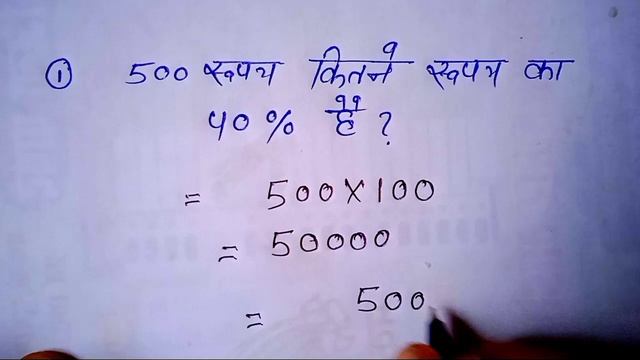 ① 500 रूपय कितने रूपय का
40% है ?
= 500×100
= 50000
= 500